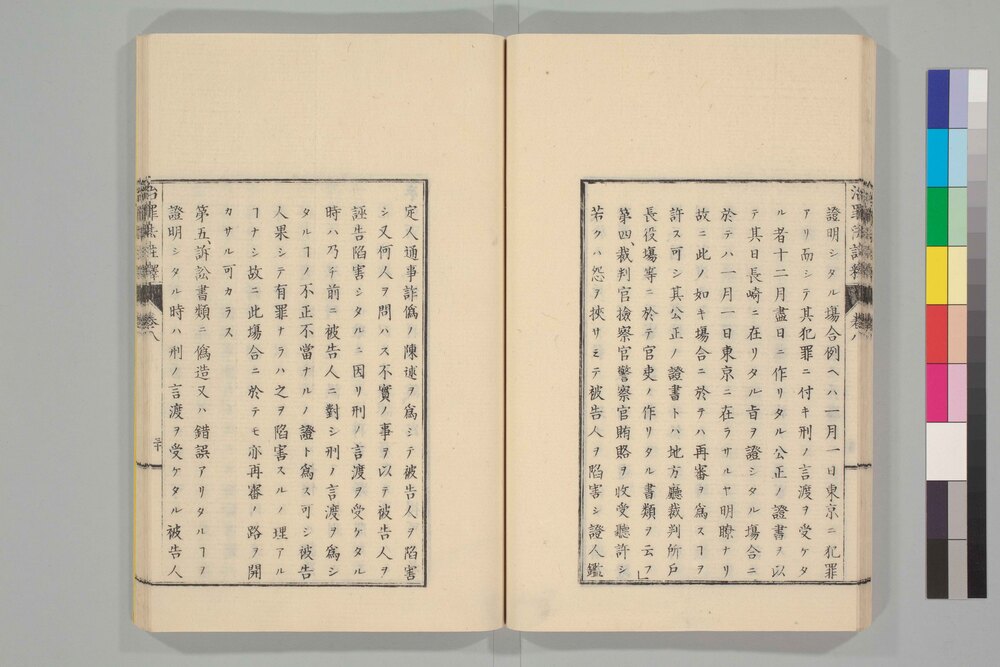 治罪法註釋 卷八
證明シタル塲合例ヘハ一月一日東京ニ犯罪
アリ而シテ其犯罪ニ付キ刑ノ言渡ヲ受ケタ
ル者十二月盡日ニ作リタル公正ノ證書ヲ以
テ其日長崎ニ在リタル旨ヲ證シタル塲合ニ
於テハ一月一日東京ニ在ラサルヤ明瞭ナリ
故ニ此ノ如キ塲合ニ於テハ再審ヲ爲スヿヲ
許ス可シ其公正ノ證書トハ地方廳裁判所戸
長役塲等ニ於テ官吏ノ作リタル書類ヲ云フ」
第四、裁判官撿察官警察官賄賂ヲ收受聽許シ
若クハ怨ヲ挾サミテ被告人ヲ陷害シ證人鑑
定人通事詐僞ノ陳述ヲ爲シテ被告人ヲ陷害
シ又何人ヲ問ハス不實ノ事ヲ以テ被告人ヲ
誣告陷害シタルニ因リ刑ノ言渡ヲ受ケタル
時ハ乃チ前ニ被告人ニ對シ刑ノ言渡ヲ爲シ
タルヿノ不正不當ナルノ證ト爲ス可シ被告
人果シテ有罪ナラハ之ヲ陷害スルノ理アル
ヿナシ故ニ此塲合ニ於テモ亦再審ノ路ヲ開
カサル可カラス
第五、訴訟書類ニ僞造又ハ錯誤アリタルヿヲ
證明シタル時ハ刑ノ言渡ヲ受ケタル被告人
治罪法註釋 卷八